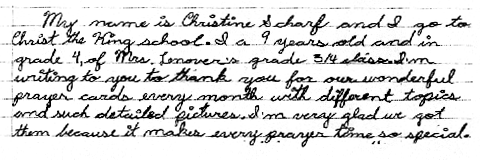 My name is Christine Scharf and I go to
Christ the King school. I a 9 years old and in
grade 4, of Mrs. Lenover's grade 3/4 class. I'm
writing to you to thank you for our wonderful
prayer cards every month with different topics
and such detailed pictures. I'm very glad we got
them because it makes every prayer time so special.